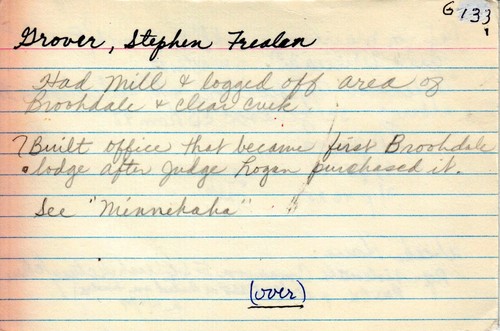 G 133
Grover, Stephen Frealan
Had Mill & logged off area of
Brookdale & clear creek.
? Built office that became first Brookdale
lodge after Judge Logan purchased it.
See "Minnehaha"
(over)